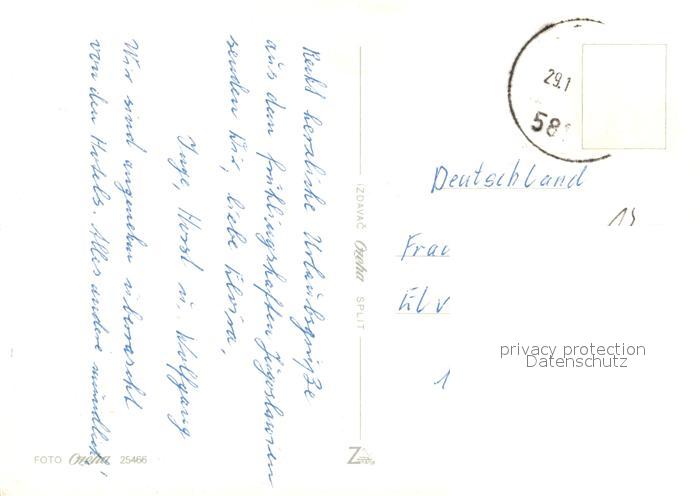 Recht herzliche Urlaubsgrüße
aus dem frühlingshaften Jugoslawien
senden Dir, liebe Elvira,
Inge, Horst u. Wolfgang
Wir sind angenehm überrascht
von den Hotels. Alles andere mündlich!
IZDAVAČ Oneha SPLIT
FOTO Oneha 25466
29.1
58
Deutschland
Frau
Elv
1
privacy protection
Datenschutz